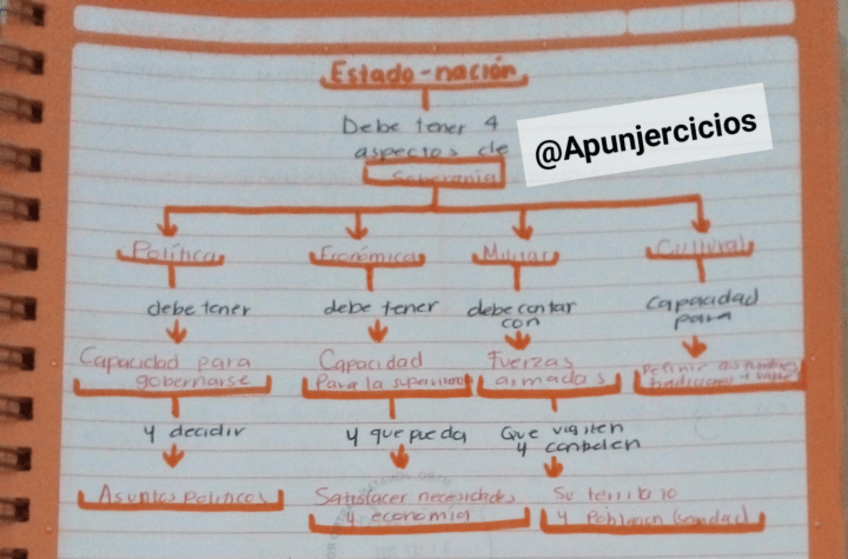 Estado-nación
Debe tener 4
aspectos de
Soberanía
@Apunjercicios
Política
Económica
Militar
Cultural
debe tener
debe tener
debe contar
con
Capacidad
para
Capacidad para
gobernarse
Capacidad
Para la
Fuerzas
armadas
Definir
tradiciones y
y decidir
y que pueda
Que vigilen
y
Asuntos Políticos
Satisfacer necesidades
y economía
Su
y